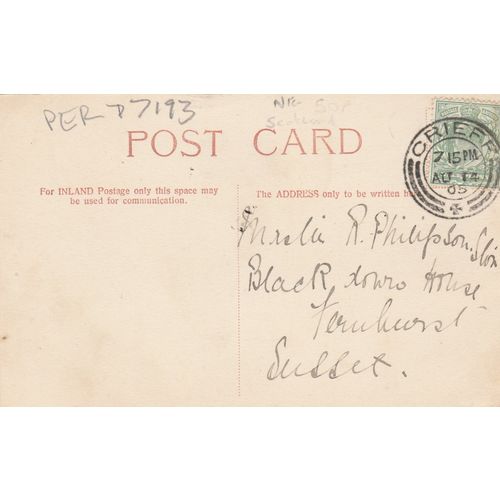 PER D7193
N/C 50P
Scotland
POST CARD
CRIEFF
7.15PM
AU 14
05
For INLAND Postage only this space may
be used for communication.
The ADDRESS only to be written here
Master R. Philipson
Black down House
Fernhurst
Sussex.